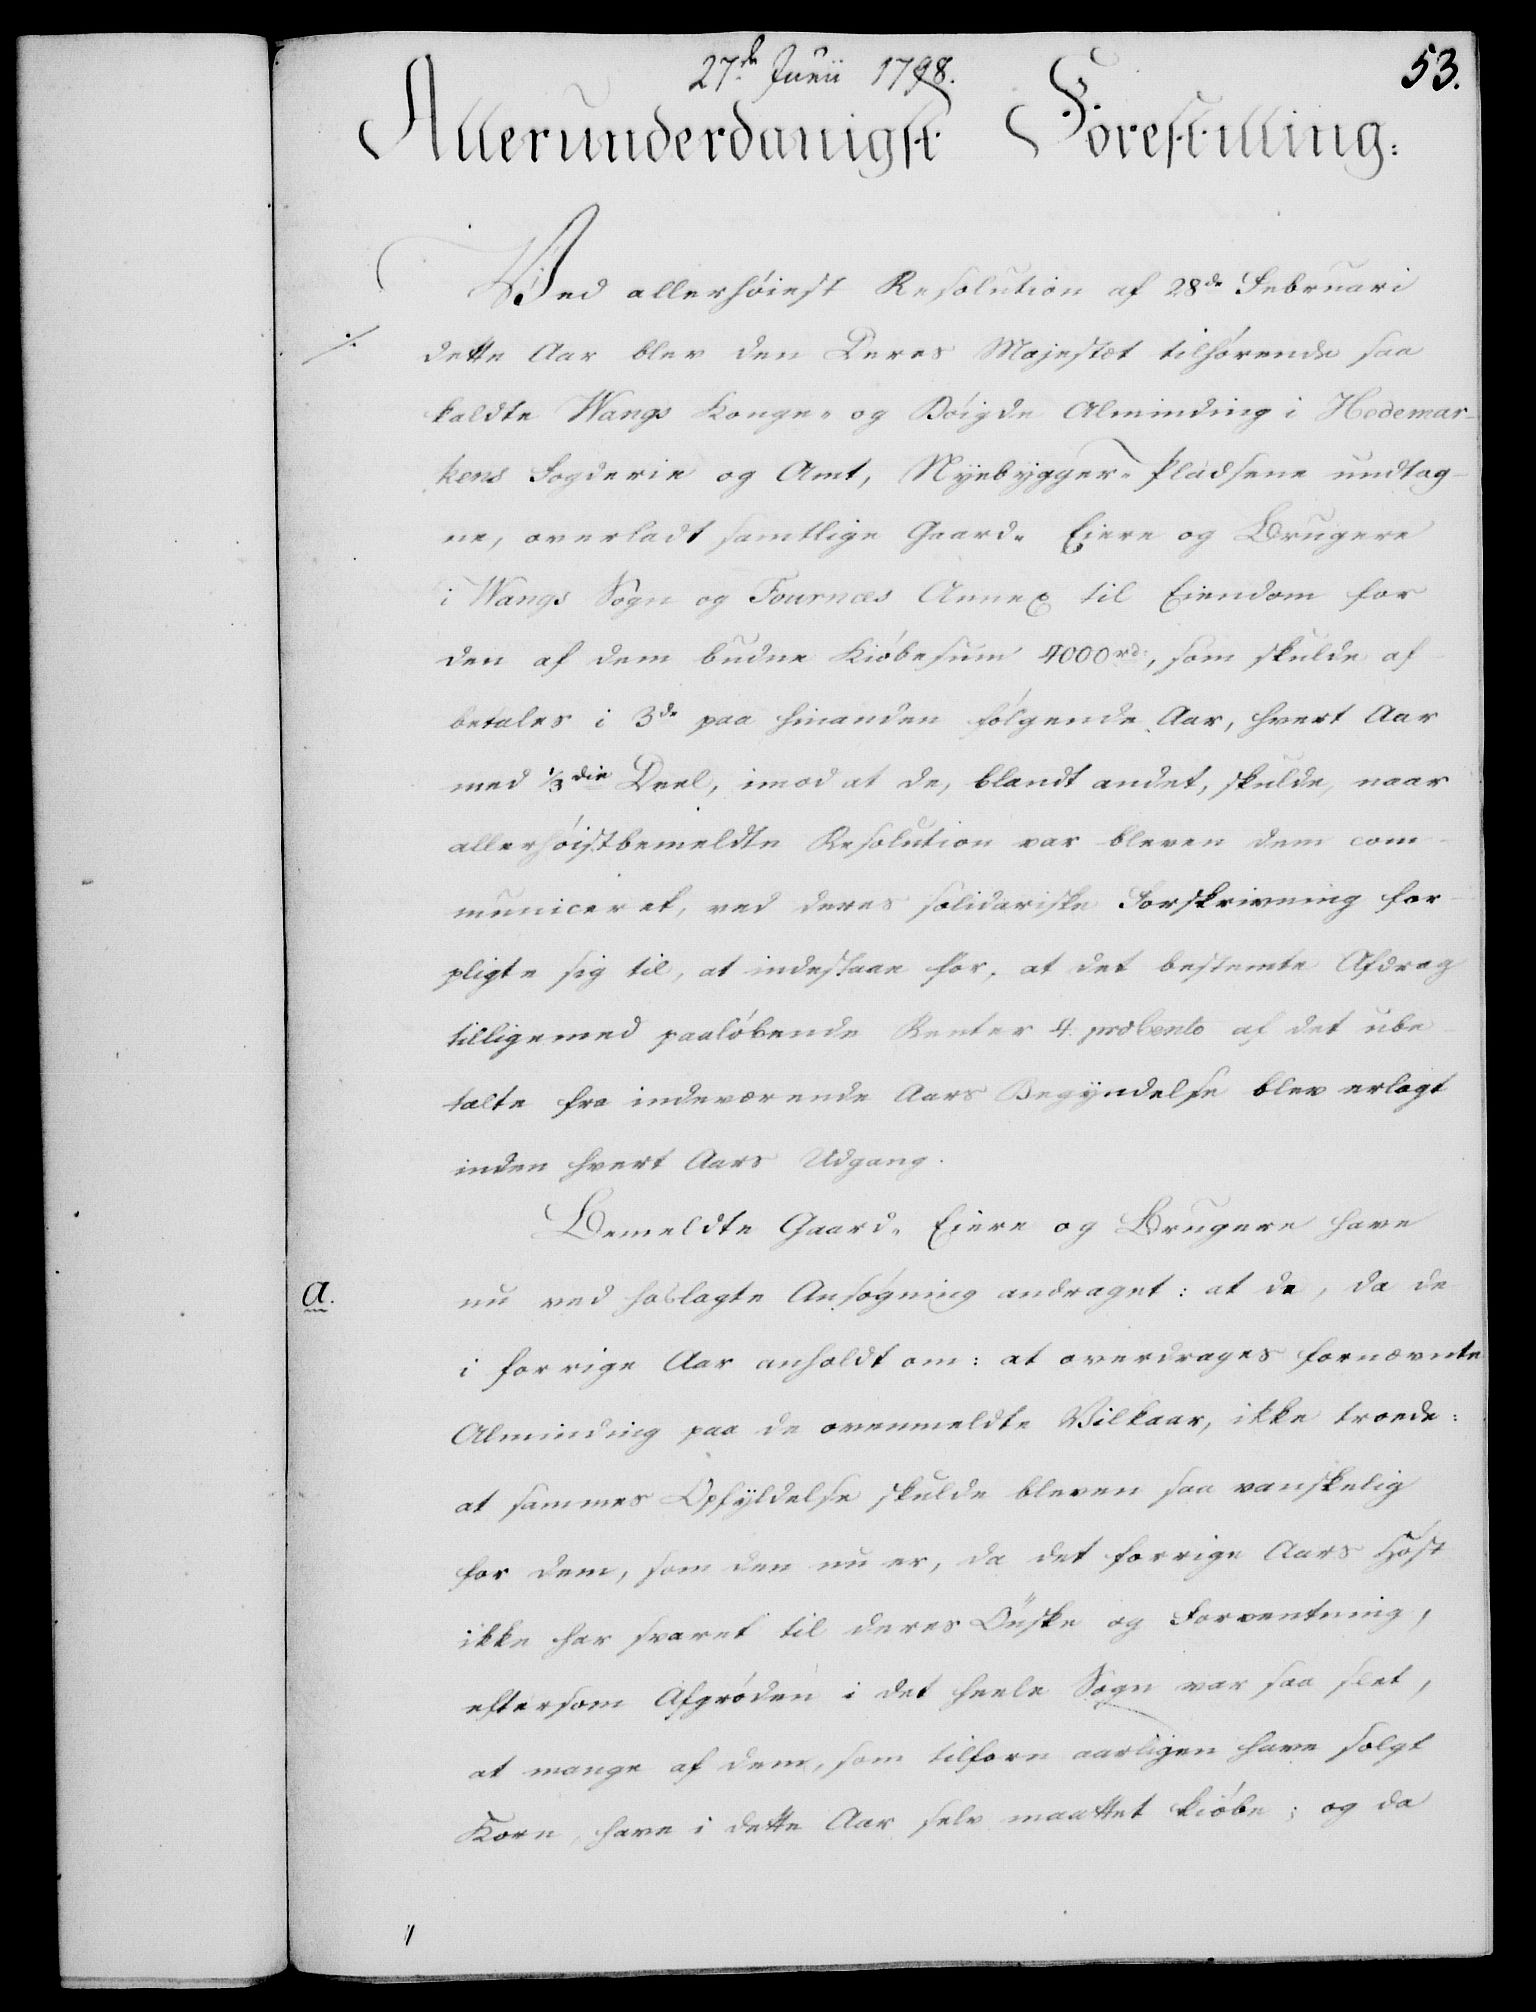 27de Junii 1798.
53.
Allerunderdanigst Forestilling:
Ved allerhöiest Resolution af 28de Februari
./.
dette Aar blev den Deres Majestæt tilhörende saa
kaldte Wangs Konge- og Böigde Alminding i Hedemar-
kens Fogderie og Amt, Nyebygger-Pladsene undtag-
ne, overladt samtlige Gaard- Eiere og Brugere
i Wangs Sogn og Fournæs Annex til Eiendom for
den af dem budne Kiöbesum 4000rd:, som skulde af-
betales i 3de paa hinanden fölgende Aar, hvert Aar
med 1/3die Deel, imod at de, blandt andet, skulde, naar
allerhöistbemeldte Resolution var bleven dem com-
municeret, ved deres solidariske Forskrivning for-
pligte sig til, at indestaae for, at det bestemte Afdrag
tilligemed paalöbende Renter 4. procento af det ube-
talte fra indeværende Aars Begyndelse blev erlagt
inden hvert Aars Udgang.
Bemeldte Gaard- Eiere og Brugere have
a.
nu ved hoslagte Ansögning andraget: at de, da de
i forrige Aar anholdt om: at overdrages fornævnte
Alminding paa de ovenmeldte Vilkaar, ikke troede:
at sammes Opfyldelse skulde bleven saa vanskelig
for dem, som den nu er, da det forrige Aars Höst
ikke har svaret til deres Önske og Forventning,
eftersom Afgröden i det heele Sogn var saa slet,
at mange af dem, som tilforn aarligen have solgt
Korn, have i dette Aar selv maattet kiöbe; og da